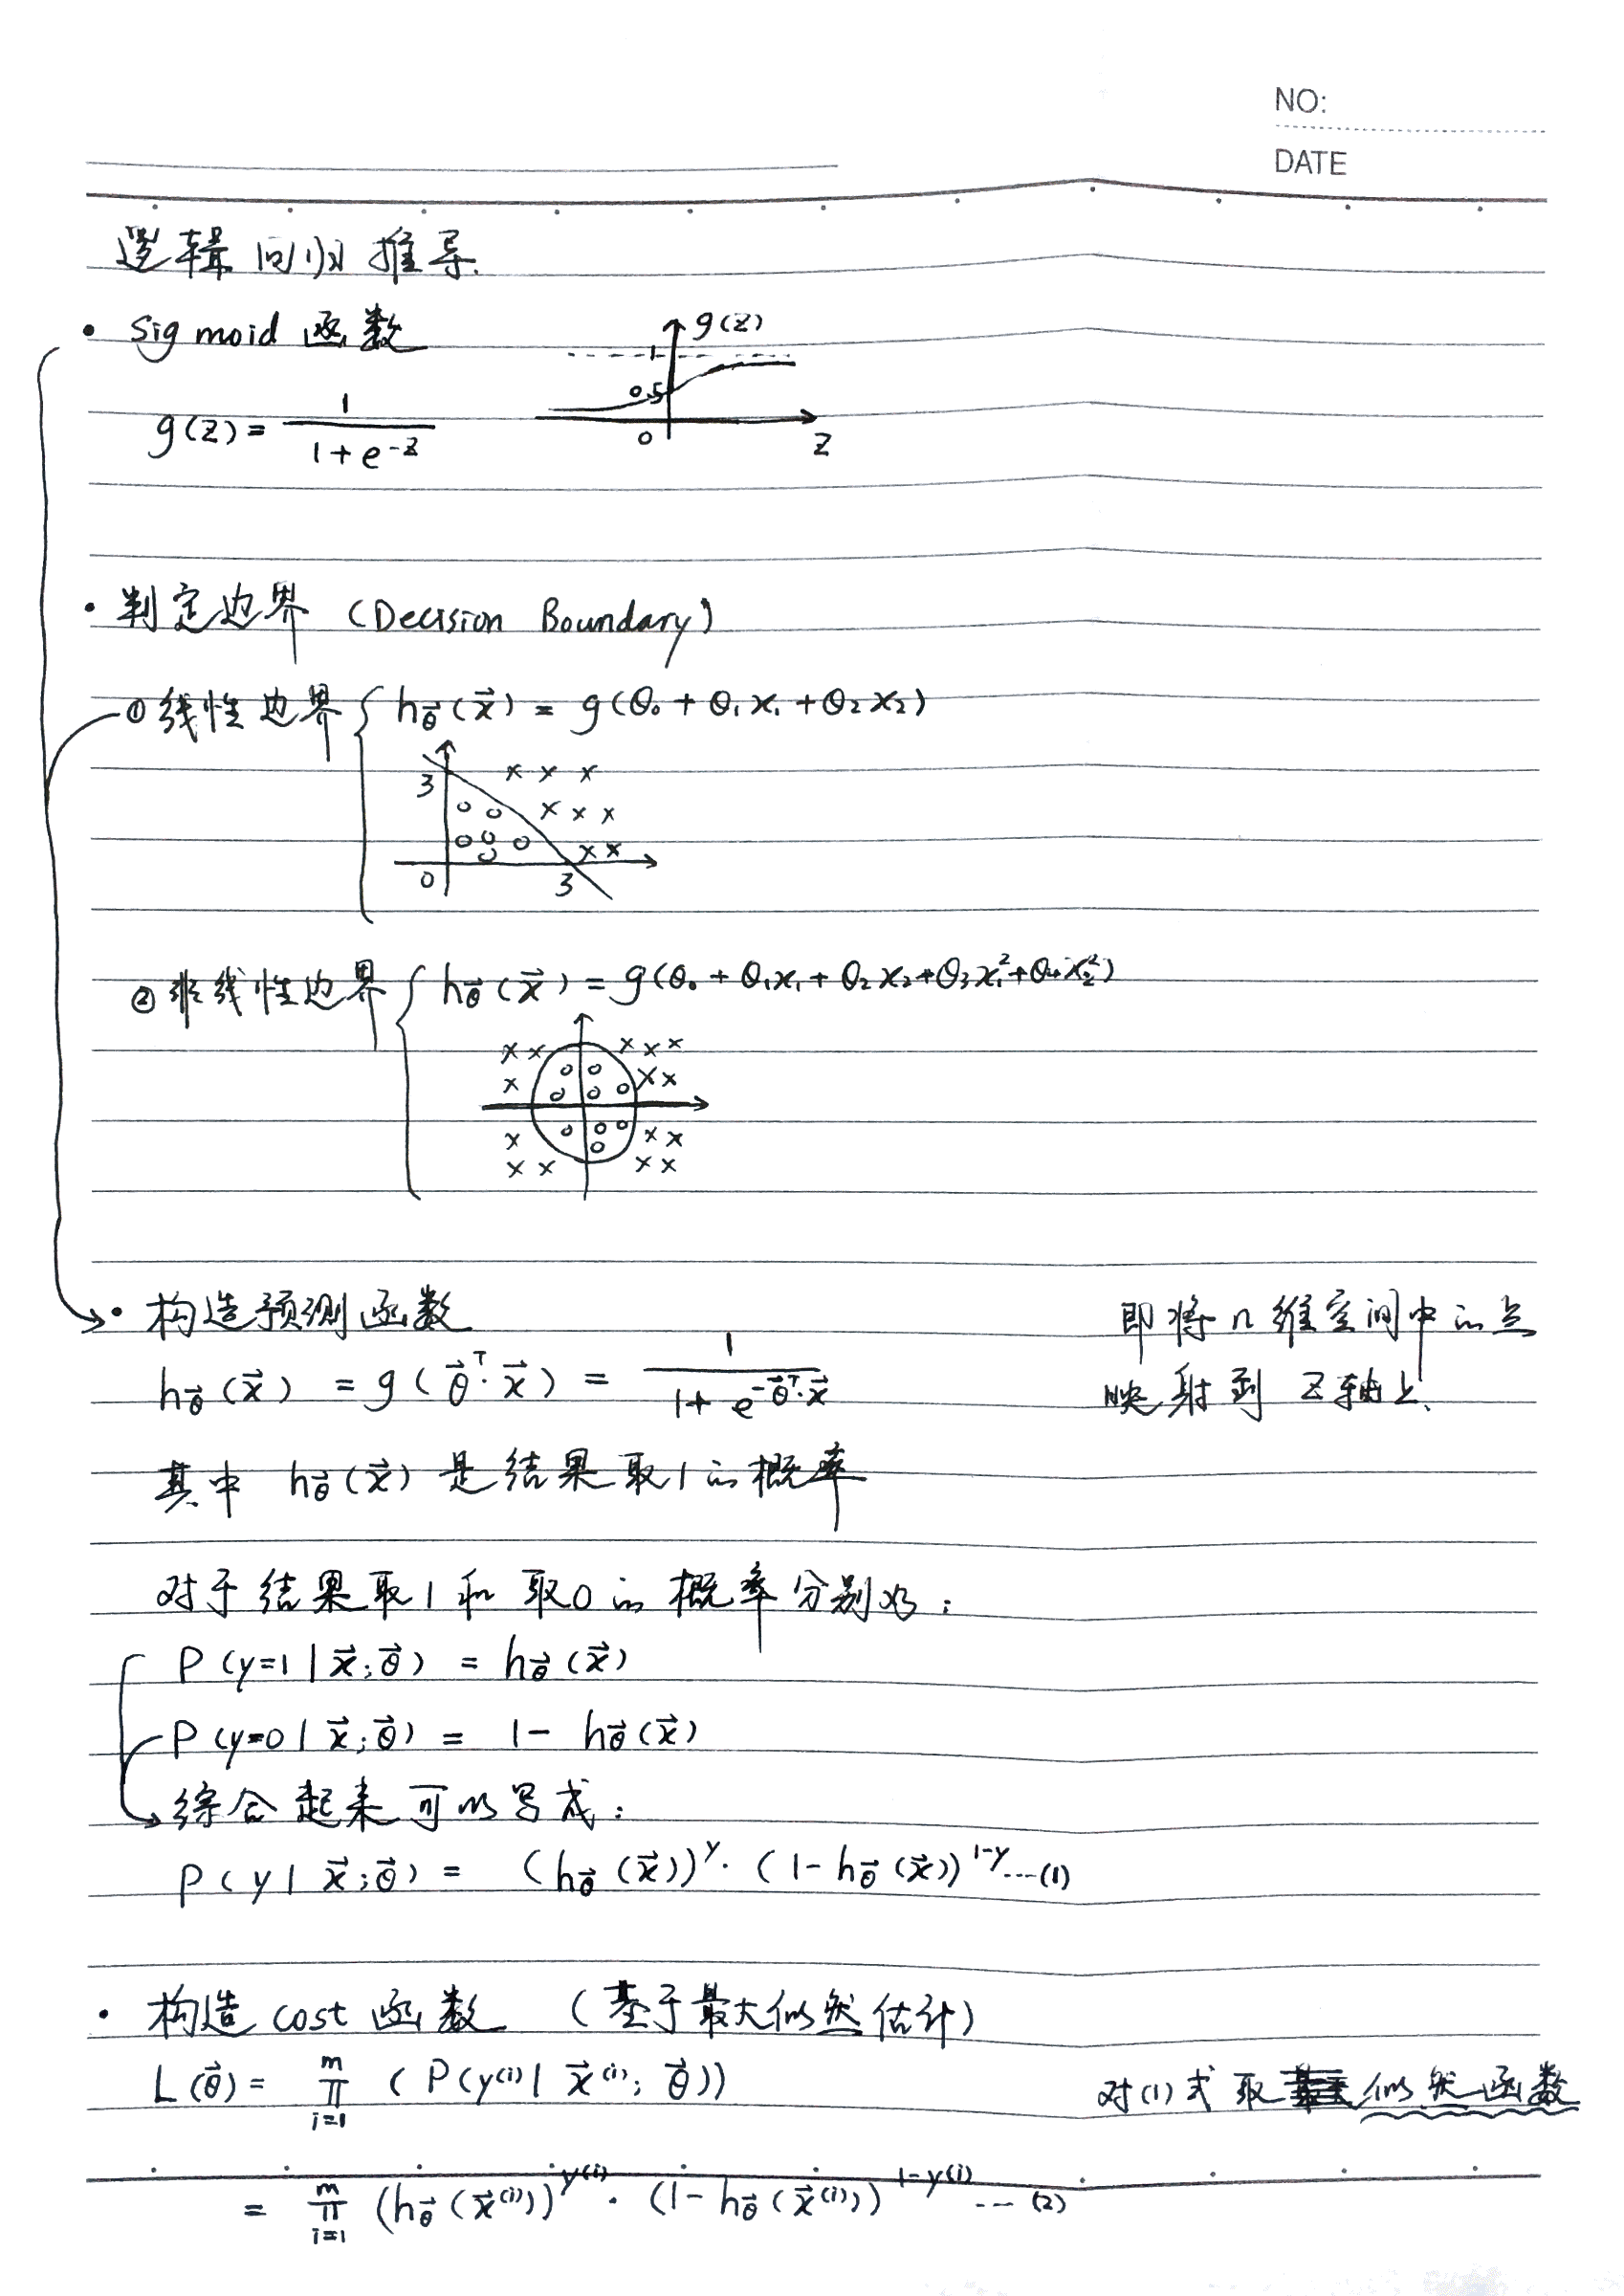 NO:
DATE
逻辑回归推导.
• Sigmoid 函数
g(z)
1
0.5
0
z
g(z) = 1 / (1 + e^{-z})
• 判定边界 (Decision Boundary)
① 线性边界 { h_{\vec{θ}}(\vec{x}) = g(θ₀ + θ₁x₁ + θ₂x₂)
3
0
3
② 非线性边界 { h_{\vec{θ}}(\vec{x}) = g(θ₀ + θ₁x₁ + θ₂x₂ + θ₃x₁² + θ₄x₂²)
• 构造预测函数
即将n维空间中的点
h_{\vec{θ}}(\vec{x}) = g(\vec{θ}^T · \vec{x}) = 1 / (1 + e^{-\vec{θ}^T · \vec{x}})
映射到 Z轴上.
其中 h_{\vec{θ}}(\vec{x}) 是结果取1的概率
对于结果取1和取0的概率分别为:
P(y=1 | \vec{x};\vec{θ}) = h_{\vec{θ}}(\vec{x})
P(y=0 | \vec{x};\vec{θ}) = 1 - h_{\vec{θ}}(\vec{x})
综合起来可以写成:
P(y | \vec{x};\vec{θ}) = (h_{\vec{θ}}(\vec{x}))^y · (1 - h_{\vec{θ}}(\vec{x}))^{1-y} ---(1)
• 构造cost函数 (基于最大似然估计)
L(\vec{θ}) = ∏_{i=1}^{m} (P(y^{(i)} | \vec{x}^{(i)}; \vec{θ}))
对(1)式取似然函数
= ∏_{i=1}^{m} (h_{\vec{θ}}(\vec{x}^{(i)}))^{y^{(i)}} · (1 - h_{\vec{θ}}(\vec{x}^{(i)}))^{1-y^{(i)}} ---(2)